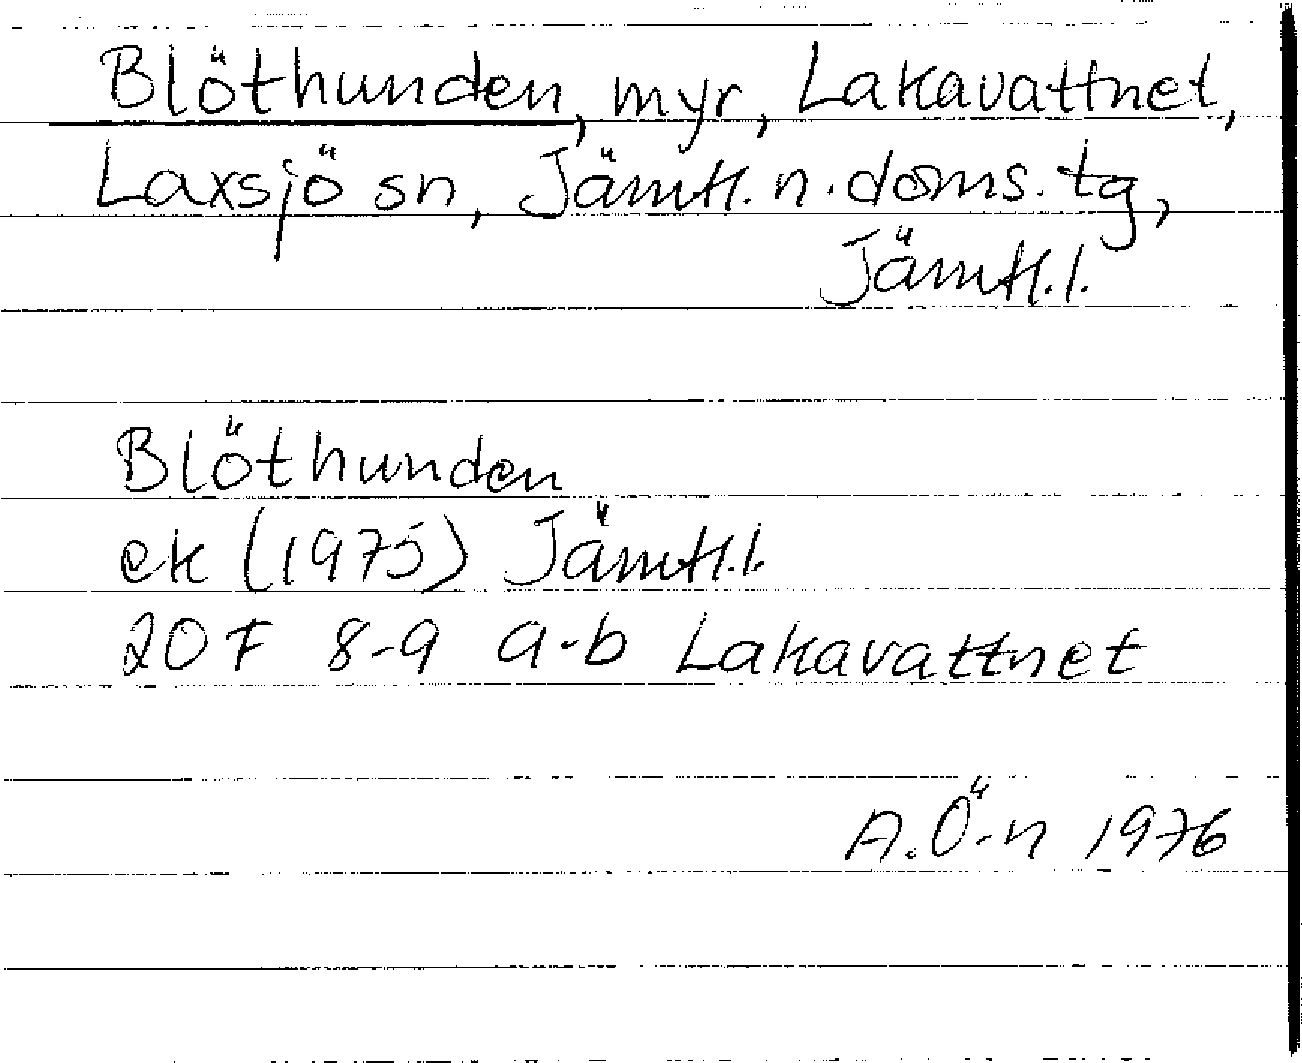 Blöthunden, myr, Lakavattnet,
Laxsjö sn, Jämtl. n. doms. tg,
Jämtl. l.
Blöthunden
ek (1975) Jämtl. l.
20 F 8-9 a-b Lakavattnet
A. Ö-n 1976